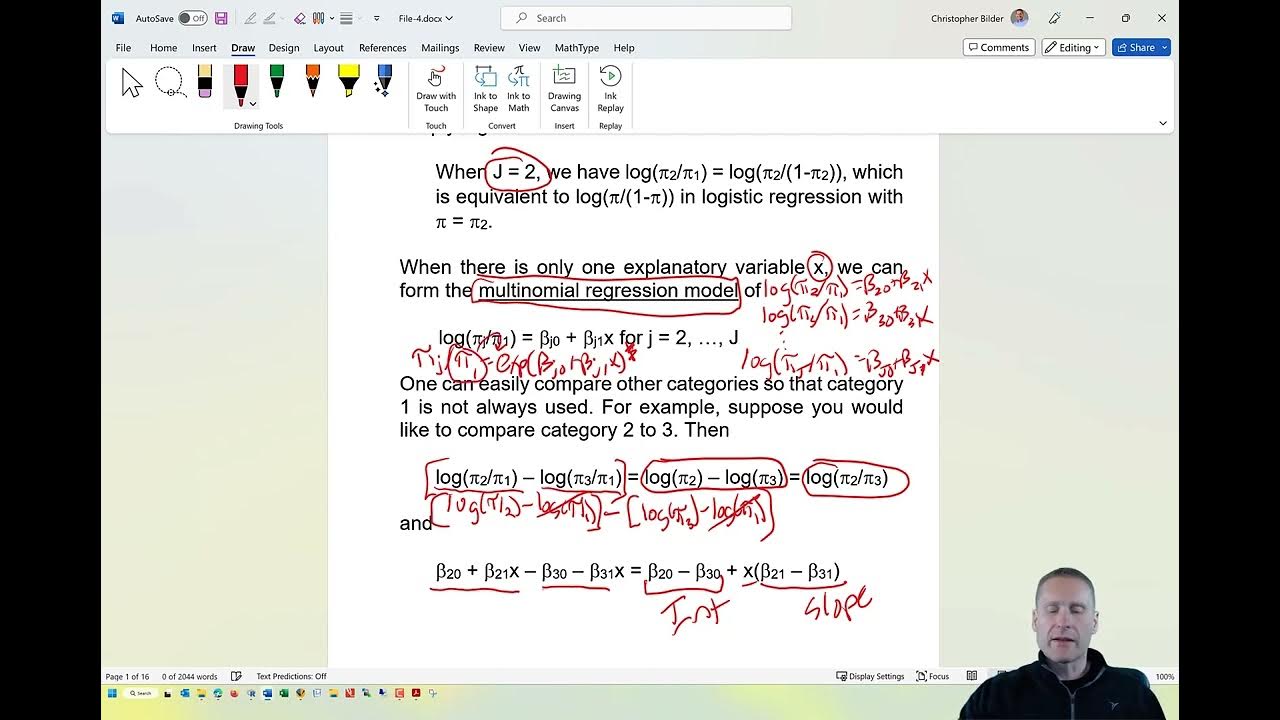 AutoSave Off File-4.docx Search Christopher Bilder
File Home Insert Draw Design Layout References Mailings Review View MathType Help Comments Editing Share
Draw with Touch Ink to Shape Ink to Math Drawing Canvas Ink Replay
Drawing Tools Touch Convert Insert Replay
When J = 2, we have log(π2/π1) = log(π2/(1-π2)), which
is equivalent to log(π/(1-π)) in logistic regression with
π = π2.
When there is only one explanatory variable x, we can
form the multinomial regression model of
log(π2/π1) = β20+β21x
log(π3/π1) = β30+β31x
log(πj/π1) = βj0 + βj1x for j = 2, …, J
πj = π1 exp(βj0+βj1x)
log(πJ/π1) = βJ0+βJ1x
One can easily compare other categories so that category
1 is not always used. For example, suppose you would
like to compare category 2 to 3. Then
log(π2/π1) – log(π3/π1) = log(π2) – log(π3) = log(π2/π3)
[log(π2) - log(π1)] - [log(π3) - log(π1)]
and
β20 + β21x – β30 – β31x = β20 – β30 + x(β21 – β31)
Int slope
Page 1 of 16 0 of 2044 words Text Predictions: Off Display Settings Focus 100%
Search